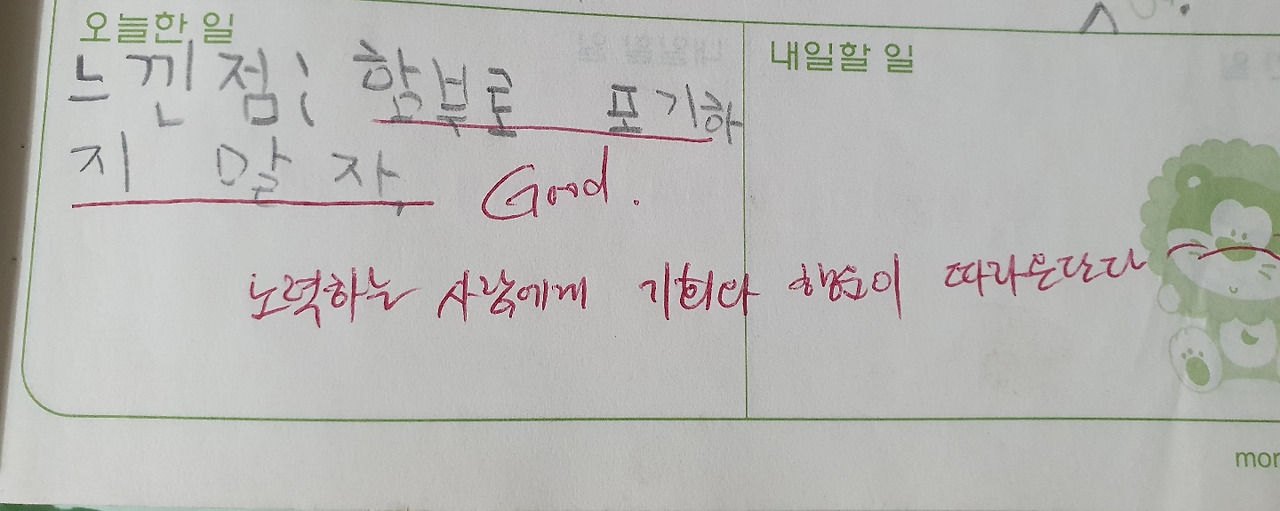 오늘한 일
내일할 일
느낀점: 함부로 포기하
지 말자,
Good.
노력하는 사람에게 기회와 행운이 따라온단다
mor